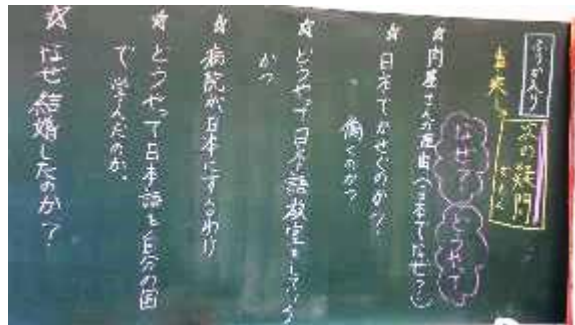 ふりかえり
次の疑問
なぜ?
どうやって
☆肉屋さんの理由(日本でなぜ?)
☆日本でかせぐのか?
働くのか?
☆どうやって日本語教室を
か?
☆病院が日本にするわけ
☆どうやって日本語を自分の国
で学んだのか。
☆なぜ結婚したのか?